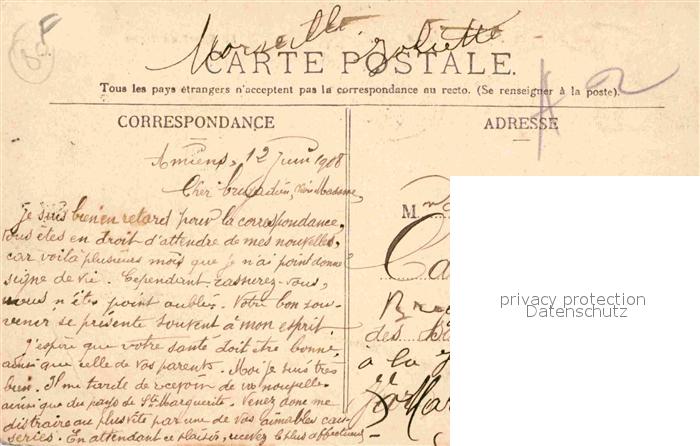 Marseille Joliette
CARTE POSTALE.
Tous les pays étrangers n'acceptent pas la correspondance au recto. (Se renseigner à la poste).
CORRESPONDANCE
ADRESSE
Amiens, 12 Juin 1908
Cher Madame,
Je suis bien en retard pour la correspondance,
vous êtes en droit d'attendre de mes nouvelles,
car voilà plusieurs mois que je n'ai point donné
signe de vie. Cependant rassurez-vous,
vous n'êtes point oublié. Votre bon sou-
venir se présente souvent à mon esprit.
J'espère que votre santé doit être bonne,
ainsi que celle de vos parents. Moi je suis très
bien. Il me tarde de recevoir de vos nouvelles
ainsi que du pays de Ste Marguerite. Venez donc me
distraire au plus vite par une de vos aimables cau-
series. En attendant ce plaisir, recevez le plus affectueux
M.
des
à la
privacy protection
Datenschutz